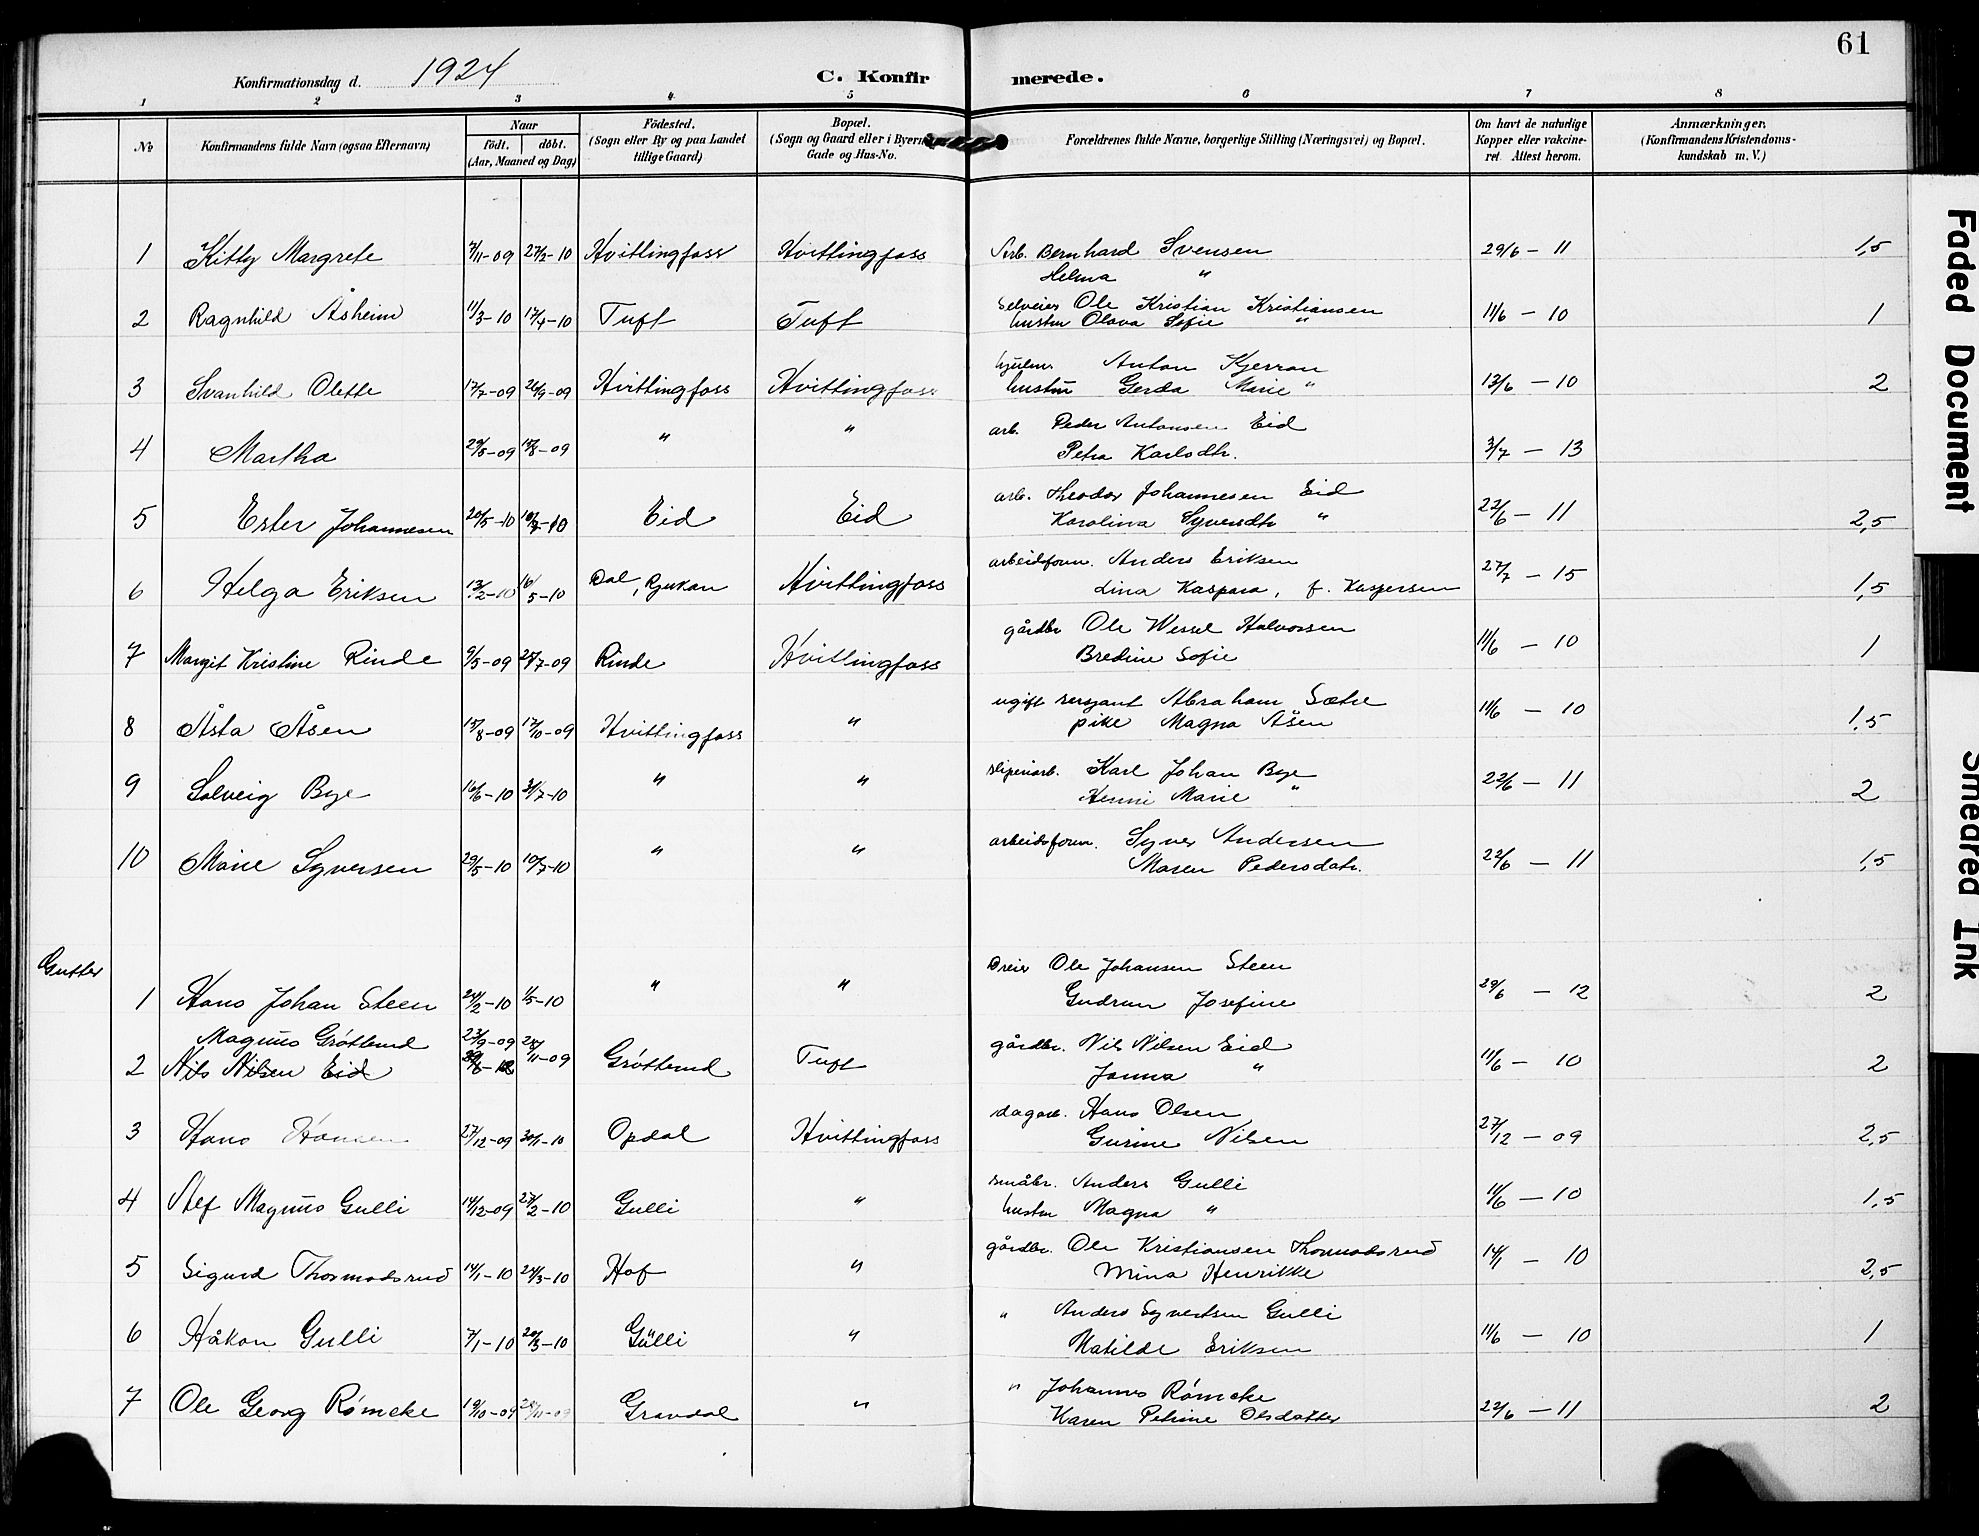 61
Konfirmationsdag d. 1924 C. Konfirmerede.
1 2 3 4 5 6 7 8
No
Konfirmandens fulde Navn (ogsaa Efternavn)
Naar
födt. döbt.
(Aar, Maaned og Dag)
Födested.
(Sogn eller By og paa Landet
tillige Gaard)
Bopæl.
(Sogn og Gaard eller i Byerne
Gade og Hus-No.
Forældrenes fulde Navne, borgerlige Stilling (Næringsvei) og Bopæl.
Om havt de naturlige
Kopper eller vakcine-
ret Attest herom.
Anmærkninger.
(Konfirmandens Kristendoms-
kundskab m. V.)
1 Kitty Margrete 7/11-09 27/2-10 Hvittingfoss Hvittingfoss Arb. Bernhard Svensen 29/6 - 11 1,5
Helma "
2 Ragnhild Åsheim 11/3-10 17/4-10 Tuft Tuft Selveier Ole Kristian Kristiansen 11/6 - 10 1
hustru Olava Sofie "
3 Svanhild Olette 17/7-09 26/9-09 Hvittingfoss Hvittingfoss Anton Kjerran 13/6 - 10 2
hustru Gerda Marie "
4 Martha " " arb. Peder Antonsen Eid 3/7 - 13
Petra Karlsdtr.
5 Ester Johannesen 20/5-10 10/7-10 Eid Eid arb. Theodor Johannesen Eid 22/6 - 11 2,5
Karolina Syversdtr "
6 Helga Eriksen 13/2-10 16/5-10 Dal, Rjukan Hvittingfoss arbeidsform. Anders Eriksen 27/7 - 15 1,5
Lina Kaspara, f. Kaspersen
7 Margit Kristine Rinde 9/5-09 25/7-09 Rinde Hvittingfoss gårdbr Ole Wessel Halvorsen 11/6 - 10 1
Bredine Sofie
8 Åsta Åsen 15/8-09 17/10-09 Hvittingfoss " ugift sersjant Abraham Sætre 11/6 - 10 1,5
pike Magna Åsen
9 Solveig Bye 16/6-10 31/7-10 " " sliperiarb. Karl Johan Bye 22/6 - 11 2
Henni Marie "
10 Marie Syversen 29/5-10 10/7-10 " " arbeidsform. Syver Andersen 22/6 - 11 1,5
Maren Pedersdatr.
Gutter
1 Hans Johan Steen 24/2-10 1/5-10 " " Dreier Ole Johansen Steen 29/6 - 12 2
Gudrun Josefine
Magnus Grøtterud 23/9-09
2 Nils Nilsen Eid 28/11-09 Grøtterud Tuft gårdbr. Nils Nilsen Eid 11/6 - 10 2
Janna "
3 Hans Hansen 27/12-09 30/1-10 Opdal Hvittingfoss dagarb. Hans Olsen 27/12 - 09 2,5
Gurine Nilsen
4 Alf Magnus Gulli 14/12-09 27/2-10 Gulli " småbr. Anders Gulli 11/6 - 10 1,5
hustru Magna "
5 Sigurd Thormodsrud 14/1-10 24/3-10 Hof " gårdbr. Ole Kristiansen Thormodsrud 14/1 - 10 2,5
Mina Henrikke
6 Håkon Gulli 7/1-10 20/3-10 Gulli " " Anders Syvertsen Gulli 11/6 - 10 1
Matilde Eriksen
7 Ole Georg Rømcke 19/10-09 28/11-09 Gravdal " " Johannes Rømcke 22/6 - 11 2
Karen Petrine Olsdatter
Faded Document
Smeared Ink